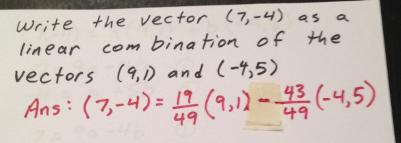 Write the vector (7,-4) as a
linear combination of the
vectors (9,1) and (-4,5)
Ans: (7,-4) = 19/49 (9,1) - 43/49 (-4,5)